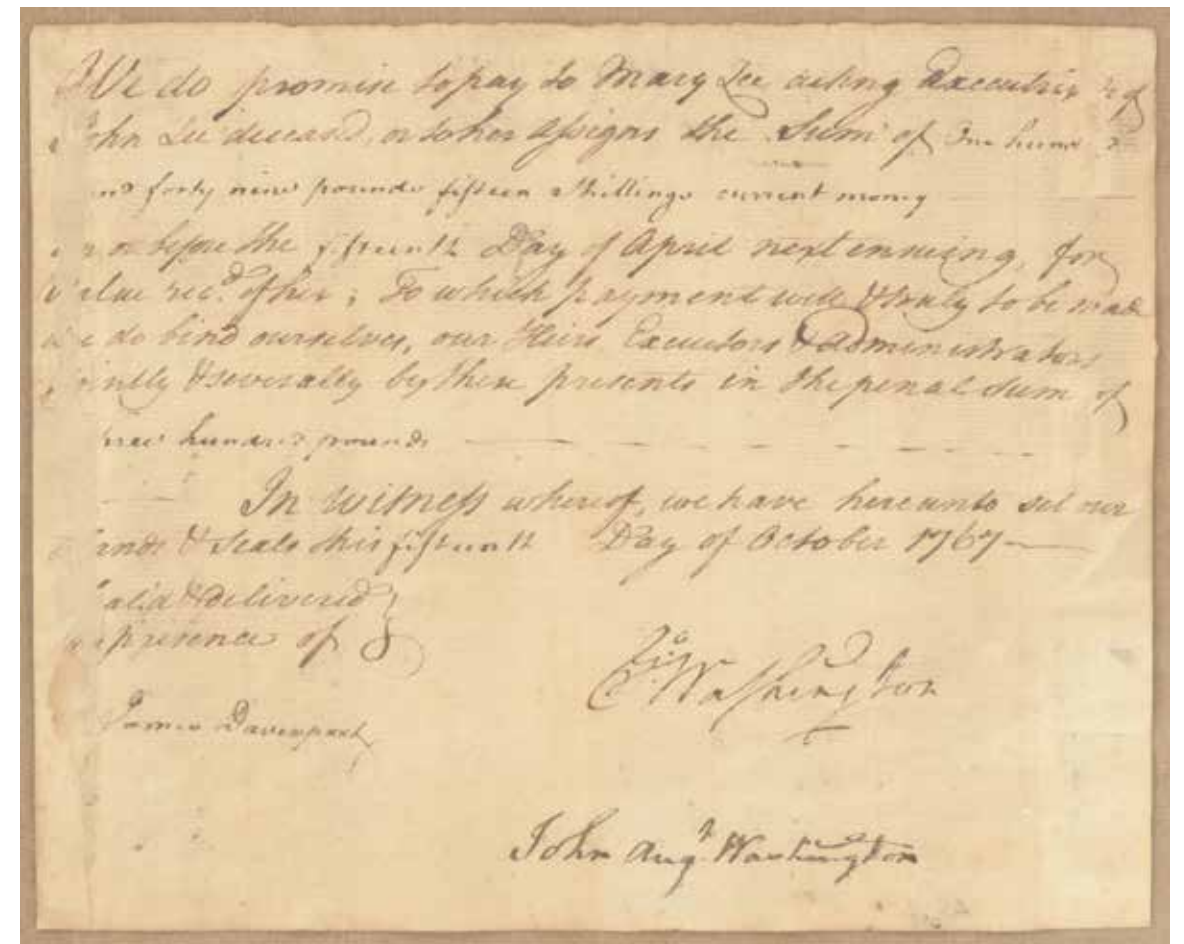 We do promise to pay to Mary Lee acting Executrix &c of
John Lee deceas'd, or to her assigns the Sum of One hund'd
and forty nine pounds fifteen Shillings current money
on or before the fifteenth Day of April next ensueing, for
Value rec.d of her; To which payment well & truly to be made
we do bind ourselves, our Heirs Executors & administrators
jointly & severally by these presents in the penal Sum of
three hundred pounds
In Witness whereof, we have hereunto set our
Hands & Seals this fifteenth Day of October 1767
Seal'd & delivered
in presence of
Go: Washington
James Davenport
John Aug.n Washington